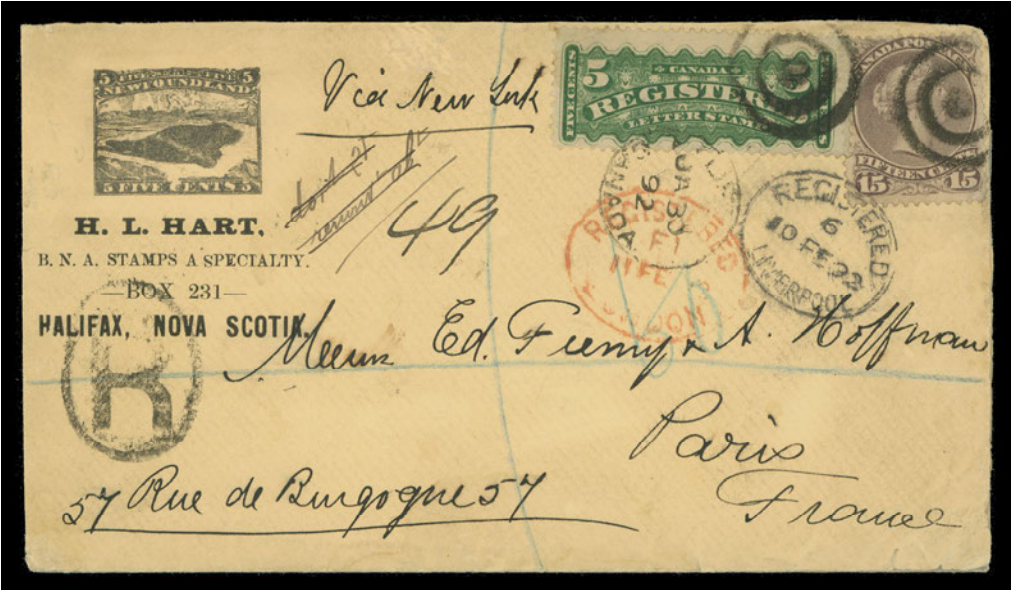 5 FIVE CENTS FIVE 5
NEWFOUNDLAND
5 FIVE CENTS 5
H. L. HART,
B. N. A. STAMPS A SPECIALTY.
—BOX 231—
HALIFAX, NOVA SCOTIA.
Via New York
49
5
CANADA
REGISTERED
LETTER STAMP
FIVE CENTS
CANADA POSTAGE
15 FIFTEEN CENTS 15
CANADA
JA 30
92
REGISTERED
11 FE
LONDON
REGISTERED
6
10 FE 92
LIVERPOOL
R
Ed.
A. Hoffman
Paris
France
57 Rue de Burgogne 57